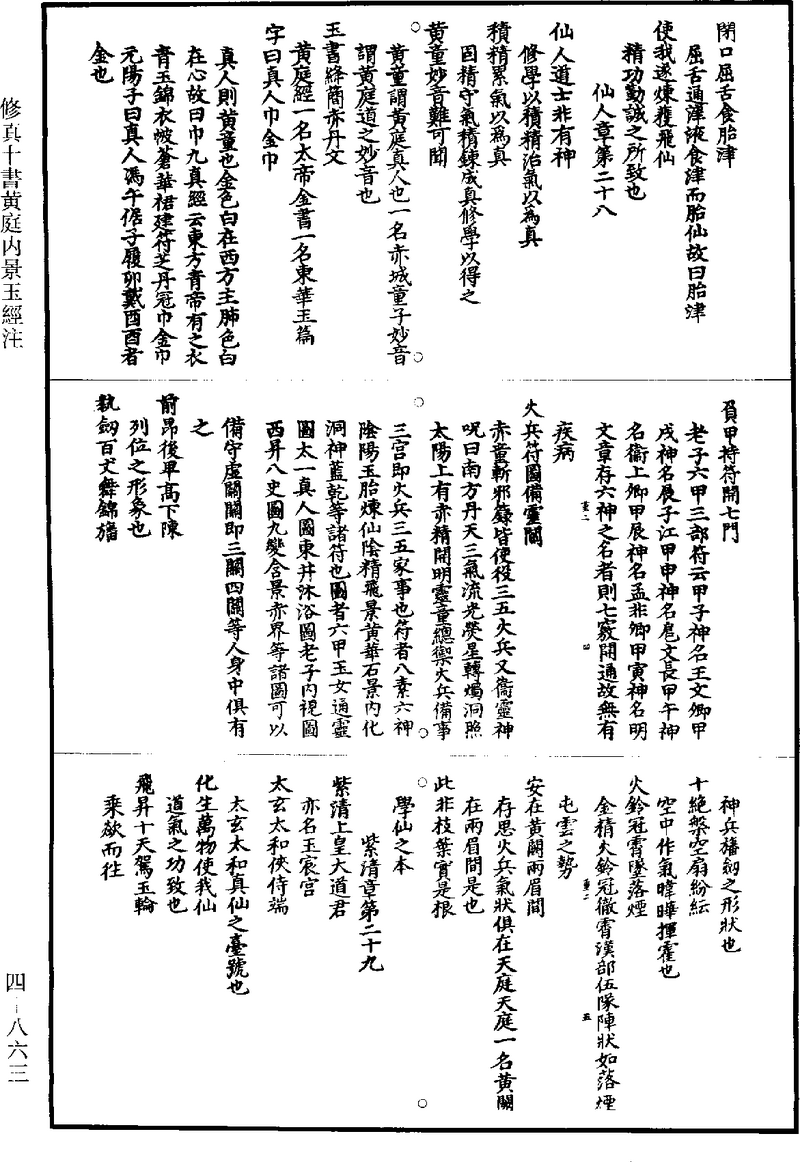 閉口屈舌食胎津
屈舌通津液食津而胎仙故曰胎津
使我遂煉獲飛仙
精功勤誠之所致也
仙人章第二十八
仙人道士非有神
修學以積精治氣以為真
積精累氣以為真
固精守氣精鍊成真修學以得之
黃童妙音難可聞
黃童謂黃庭真人也一名赤城童子妙音
謂黃庭道之妙音也
玉書絳簡赤丹文
黃庭經一名太帝金書一名東華玉篇
字曰真人巾金巾
真人則黃童也金色白在西方主肺色白
在心故曰巾九真經云東方青帝有之衣
青玉錦衣帔蒼華裙建符芝丹冠巾金巾
元陽子曰真人馮午倨子履卯戴酉酉者
金也
負甲持符開七門
老子六甲三部符云甲子神名王文卿甲
戌神名展子江甲申神名扈文長甲午神
名衞上卿甲辰神名孟非卿甲寅神名明
文章存六神之名者則七竅開通故無有
疾病
火兵符圖備靈關
赤童斬邪籙皆便役三五火兵又衞靈神
呪曰南方丹天三氣流光熒星轉燭洞照
太陽上有赤精開明靈童總禦火兵備事
三宮即火兵三五家事也符者八素六神
陰陽玉胎煉仙陰精飛景黃華石景內化
洞神蓋乾等諸符也圖者六甲玉女通靈
圖太一真人圖東井沐浴圖老子內視圖
西昇八史圖九變含景赤界等諸圖可以
備守虛關關即三關四關等人身中俱有
之
前昂後卑高下陳
列位之形象也
執劒百丈舞錦旛
神兵旛劒之形狀也
十絕槃空扇紛紜
空中作氣暐曄揮霍也
火鈴冠霄墜落煙
金精火鈴冠徹霄漢部伍隊陣狀如落煙
屯雲之勢
安在黃闕兩眉間
存思火兵氣狀俱在天庭天庭一名黃闕
在兩眉間是也
此非枝葉實是根
學仙之本
紫清章第二十九
紫清上皇大道君
亦名玉宸宮
太玄太和俠侍端
太玄太和真仙之臺號也
化生萬物使我仙
道氣之功致也
飛昇十天駕玉輪
乘歘而往
修真十書黃庭內景玉經注
四－八六三